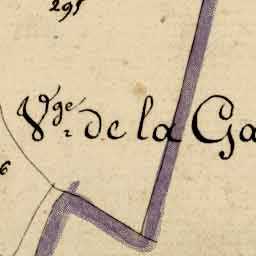 295
V.gé de la Ga
6